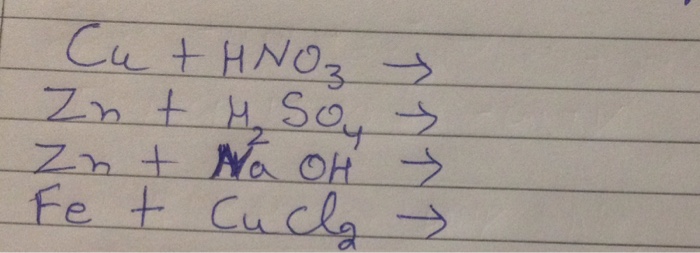 Cu + HNO₃ →
Zn + H₂SO₄ →
Zn + NaOH →
Fe + CuCl₂ →